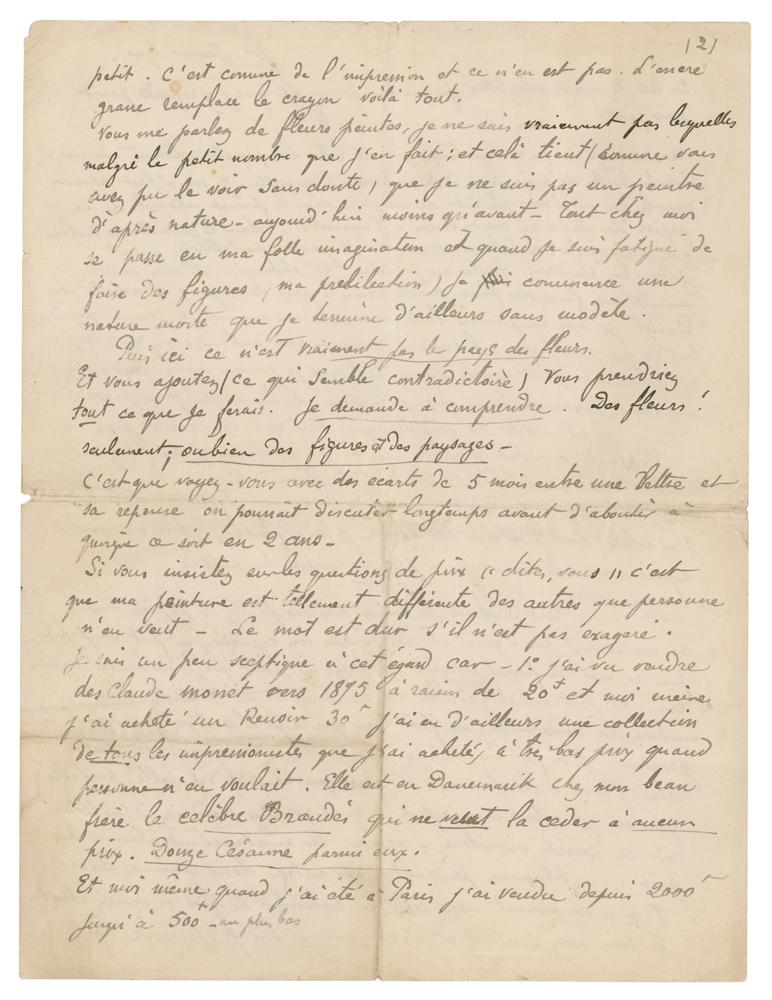 (2)
petit. C'est comme de l'impression et ce n'en est pas. L'encre
grasse remplace le crayon voilà tout.
Vous me parlez de fleurs peintes, je ne sais vraiement pas lesquelles
malgré le petit nombre que j'en fait; et celà tient (comme vous
avez pu le voir sans doute) que je ne suis pas un peintre
d'après nature - aujourd'hui moins qu'avant - Tout chez moi
se passe en ma folle imagination et quand je suis fatigué de
faire des figures (ma predilection) je commence une
nature morte que je termine d'ailleurs sans modèle.
Puis ici ce n'est vraiement pas le pays des fleurs.
Et vous ajoutez (ce qui semble contradictoire) Vous prendriez
tout ce que je ferais. Je demande à comprendre. Des fleurs!
seulement; ou bien des figures et des paysages -
C'est que voyez-vous avec des écarts de 5 mois entre une lettre et
sa reponse on pourrait discuter longtemps avant d'aboutir à
quoique ce soit en 2 ans -
Si vous insistez sur les questions de prix "dites, vous" c'est
que ma peinture est tellement différente des autres que personne
n'en veut - Le mot est dur s'il n'est pas exageré.
Je suis un peu sceptique à cet égard car - 1° j'ai vu vendre
des Claude monet vers 1875 à raison de 20f et moi meine
j'ai acheté un Renoir 30f j'ai eu d'ailleurs une collection
de tous les impressionistes que j'ai achetés à très bas prix quand
personne n'en voulait. Elle est en Danemark chez mon beau
frère le celèbre Brandès qui ne veut la ceder à aucun
prix. Douze Césanne parmi eux.
Et moi même quand j'ai été à Paris j'ai vendu depuis 2000f
jusqu'à 500f - au plus bas